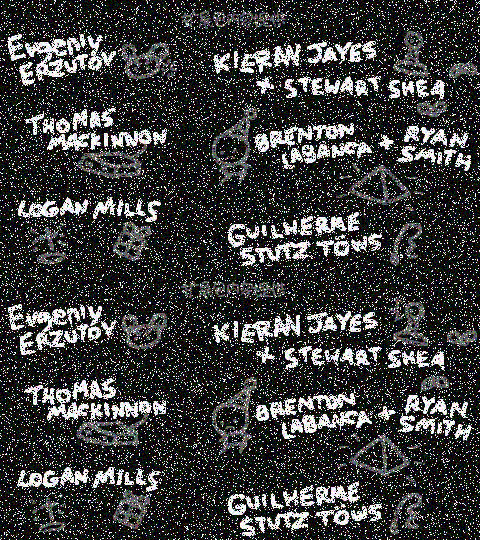 Evgeniy
ERZUTOV
KIERAN JAYES
+ STEWART SHEA
THOMAS
MACKINNON
BRENTON
LABANCA + RYAN
SMITH
LOGAN MILLS
GUILHERME
STUTZ TOWS
Evgeniy
ERZUTOV
KIERAN JAYES
+ STEWART SHEA
THOMAS
MACKINNON
BRENTON
LABANCA + RYAN
SMITH
LOGAN MILLS
GUILHERME
STUTZ TOWS